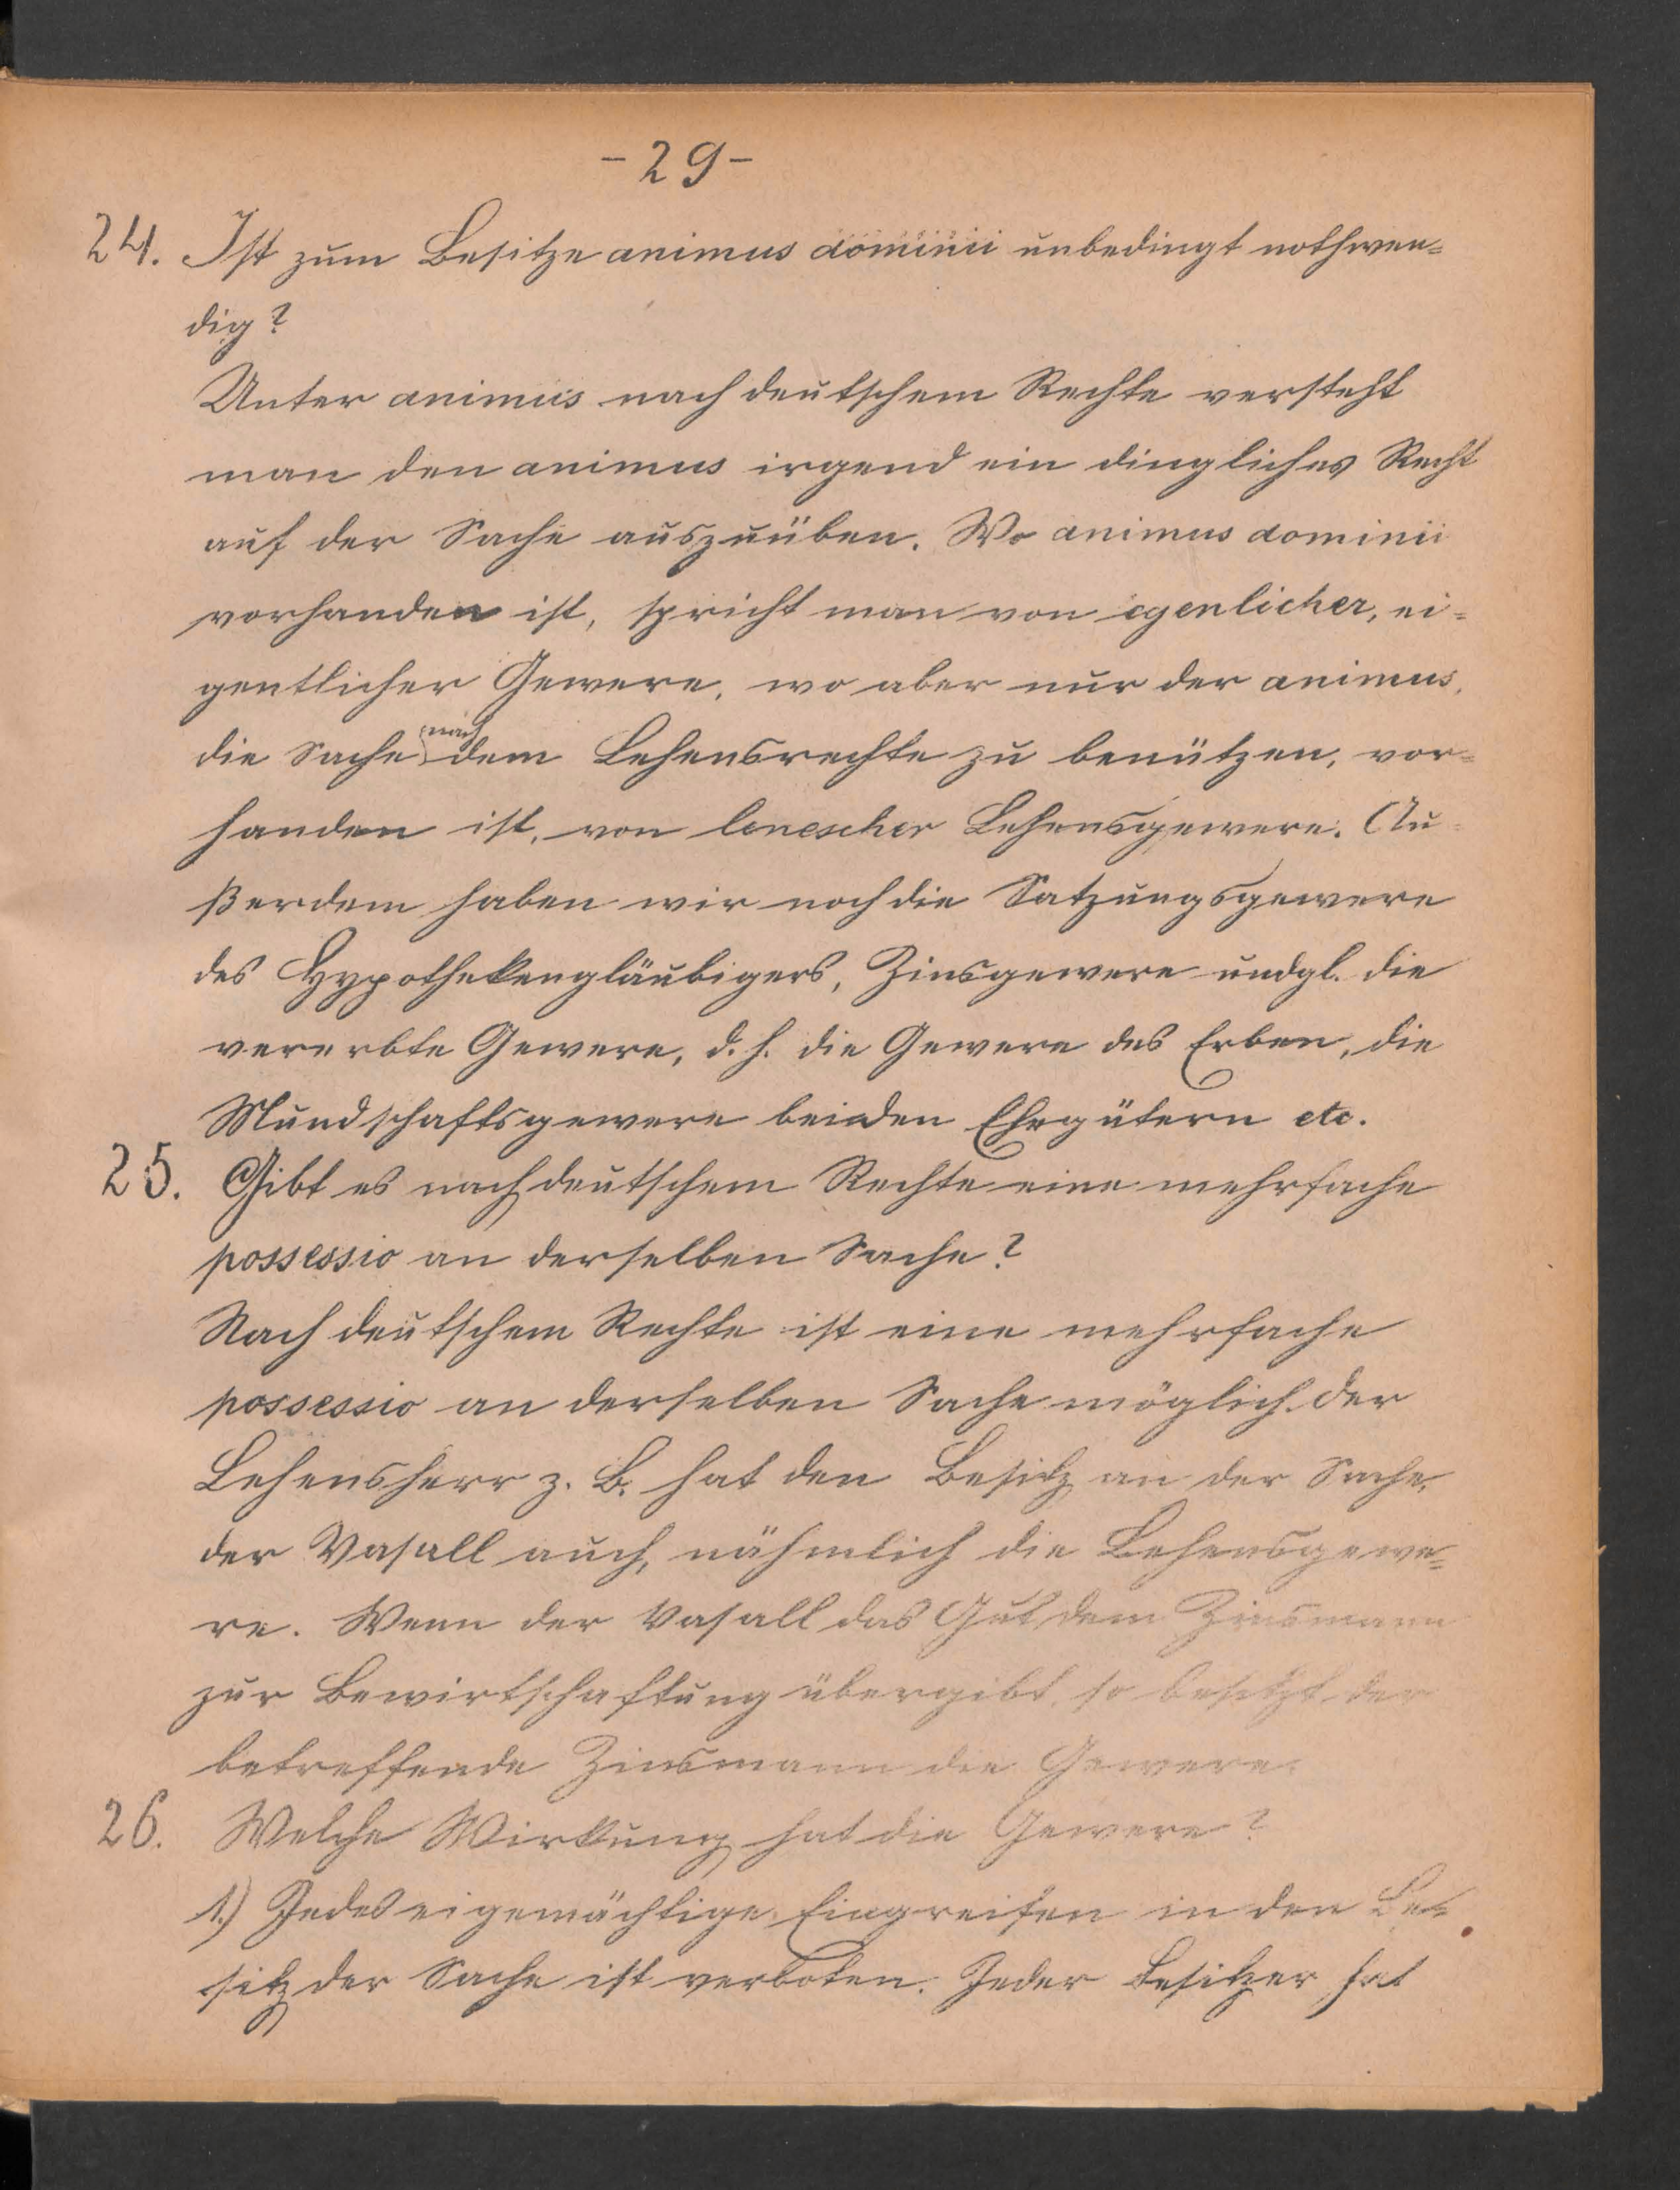 - 29 -
24. Ist zum Besitze animus dominii unbedingt nothwen=
dig?
Unter animus nach deutschem Rechte versteht
man den animus irgend ein dingliches Recht
auf der Sache auszuüben. Wo animus dominii
vorhanden ist, spricht man von egenlicher, ei=
gentlicher Gewere, wo aber nur der animus,
die Sache nach dem Lehensrechte zu benützen, vor=
handen ist, von lenescher Lehensgewere. Au=
ßerdem haben wir noch die Satzungsgewere
des Hypothekengläubigers, Zinsgewere undgl. die
vererbte Gewere, d. h. die Gewere des Erben, die
Mundschaftsgewere bei den Ehegütern etc.
25. Gibt es nach deutschem Rechte eine mehrfache
possessio an derselben Sache?
Nach deutschem Rechte ist eine mehrfache
possessio an derselben Sache möglich. Der
Lehensherr z. B. hat den Besitz an der Sache,
der Vasall auch, nähmlich die Lehensgewe=
re. Wenn der Vasall das Gut dem Zinsmann
zur Bewirtschaftung übergibt, so besitzt der
betreffende Zinsmann die Gewere.
26. Welche Wirkung hat die Gewere?
1.) Jedes eigemächtige Eingreifen in den Be=
sitz der Sache ist verboten. Jeder Besitzer hat